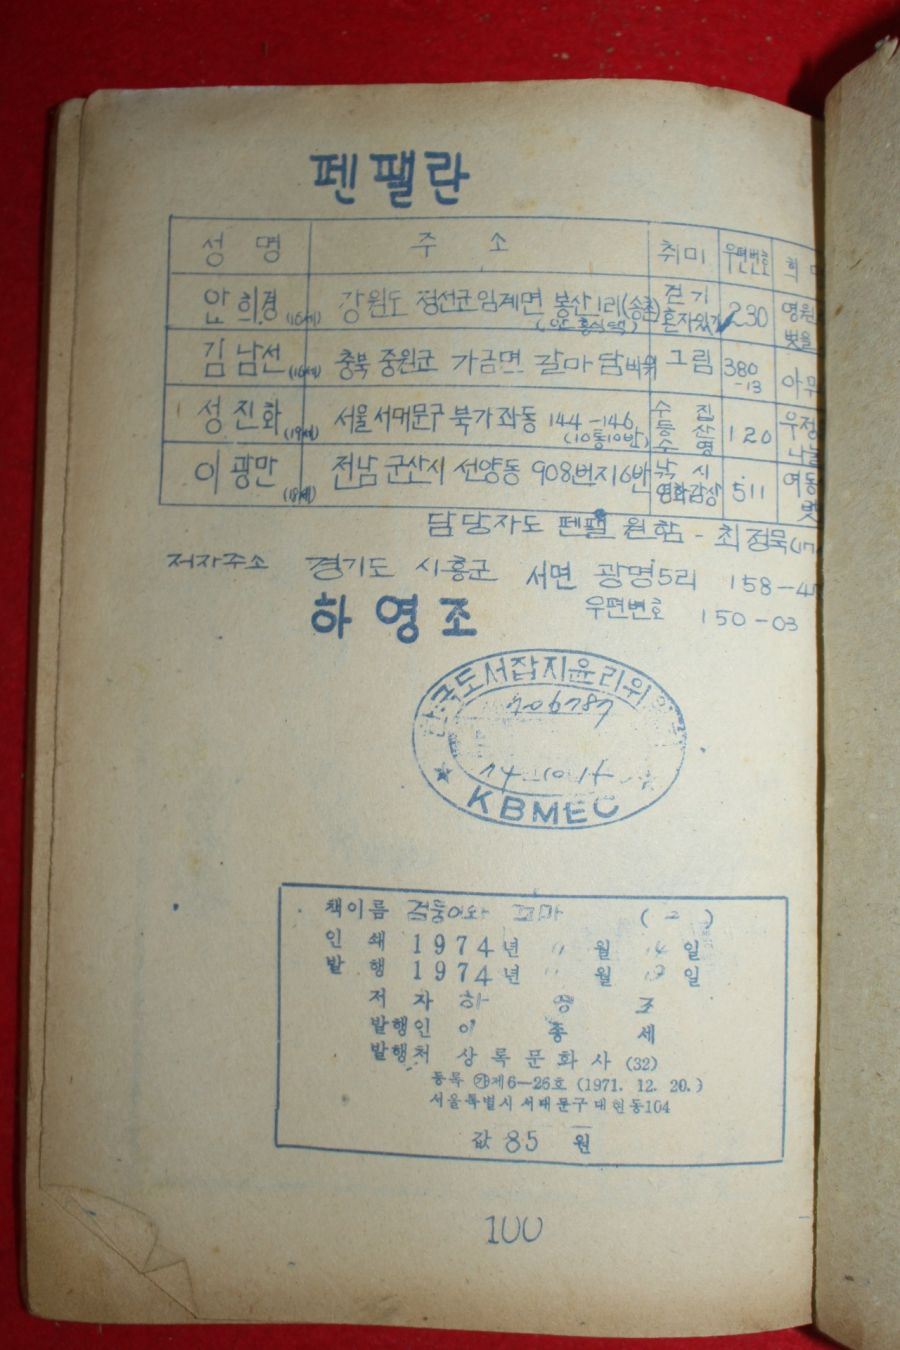 펜팰란
성 명 주 소 취미 우편번호 희
안희경 (16세) 강원도 정선군 임계면 봉산1리(송촌) 걷기 혼자있기 230 영원
벗을
김남선 (16세) 충북 중원군 가금면 갈마 담바위 그림 380-13 아무
성진화 (19세) 서울 서대문구 북가좌동 144-146 (10통10반) 수집 등산 수영 120 우정 나눌
이광만 (18세) 전남 군산시 선양동 908번지6반 낚시 영화감상 511 여동 벗
담당자도 펜팰 원함 - 최정묵(17
저자주소 경기도 시흥군 서면 광명5리 158-4
하영조 우편번호 150-03
한국도서잡지윤리위
706787
74 10 14
KBMEC
책이름 검둥이와 꼬마 (2)
인쇄 1974년 11월 14일
발행 1974년 11월 일
저자 하영조
발행인 이종세
발행처 상록문화사 (32)
등록 ㉮제6—26호 (1971. 12. 20.)
서울특별시 서대문구 대현동104
값 85 원
100